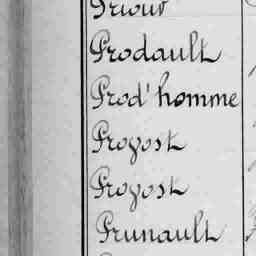 Priour
Prodault
Prod'homme
Provost
Provost
Prunault